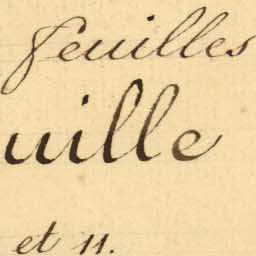 feuilles
uille
et 11.